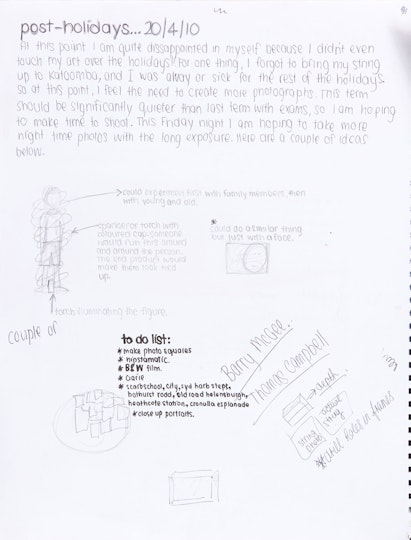 post-holidays... 20/4/10
At this point I am quite dissappointed in myself because I didn't even
touch my art over the holidays! For one thing, I forgot to bring my string
up to Katoomba, and I was away or sick for the rest of the holidays.
so at this point, I feel the need to create more photographs. This term
should be significantly quieter than last term with exams, so I am hoping
to make time to shoot. This Friday night I am hoping to take more
night time photos with the long exposure. Here are a couple of ideas
below.
could experiment first with family members, then
with young and old.
sparkler or torch with
coloured cap. someone
would run this around
and around the person.
the end product would
make them look tied
up.
* could do a similar thing
but just with a face.
torch illuminating the figure.
couple of
to do list:
* make photo squares
* hipstamatic.
* B&W film.
*
* scarbschool, city, syd harb stept,
bathurst road, old road helensburgh,
heathcote station, cronulla esplanade
* close up portraits.
Barry McGee.
Thomas Campbell
depth
string
string
* drill holes in frames